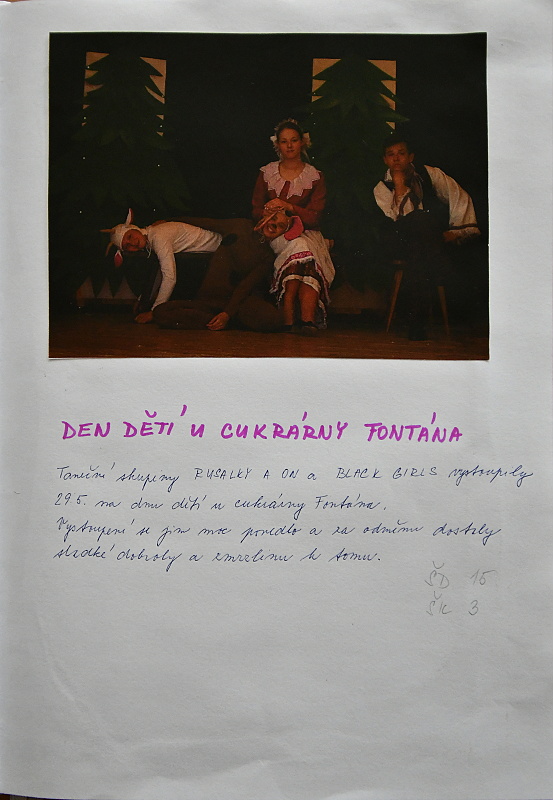 DEN DĚTÍ U CUKRÁRNY FONTÁNA
Taneční skupiny RUSALKY A ON a BLACK GIRLS vystoupily
29.5. na dnu dětí u cukrárny Fontána.
Vystoupení se jim moc povedlo a za odměnu dostaly
sladké dobroty a zmrzlinu k tomu.
ŠD 15
ŠK 3